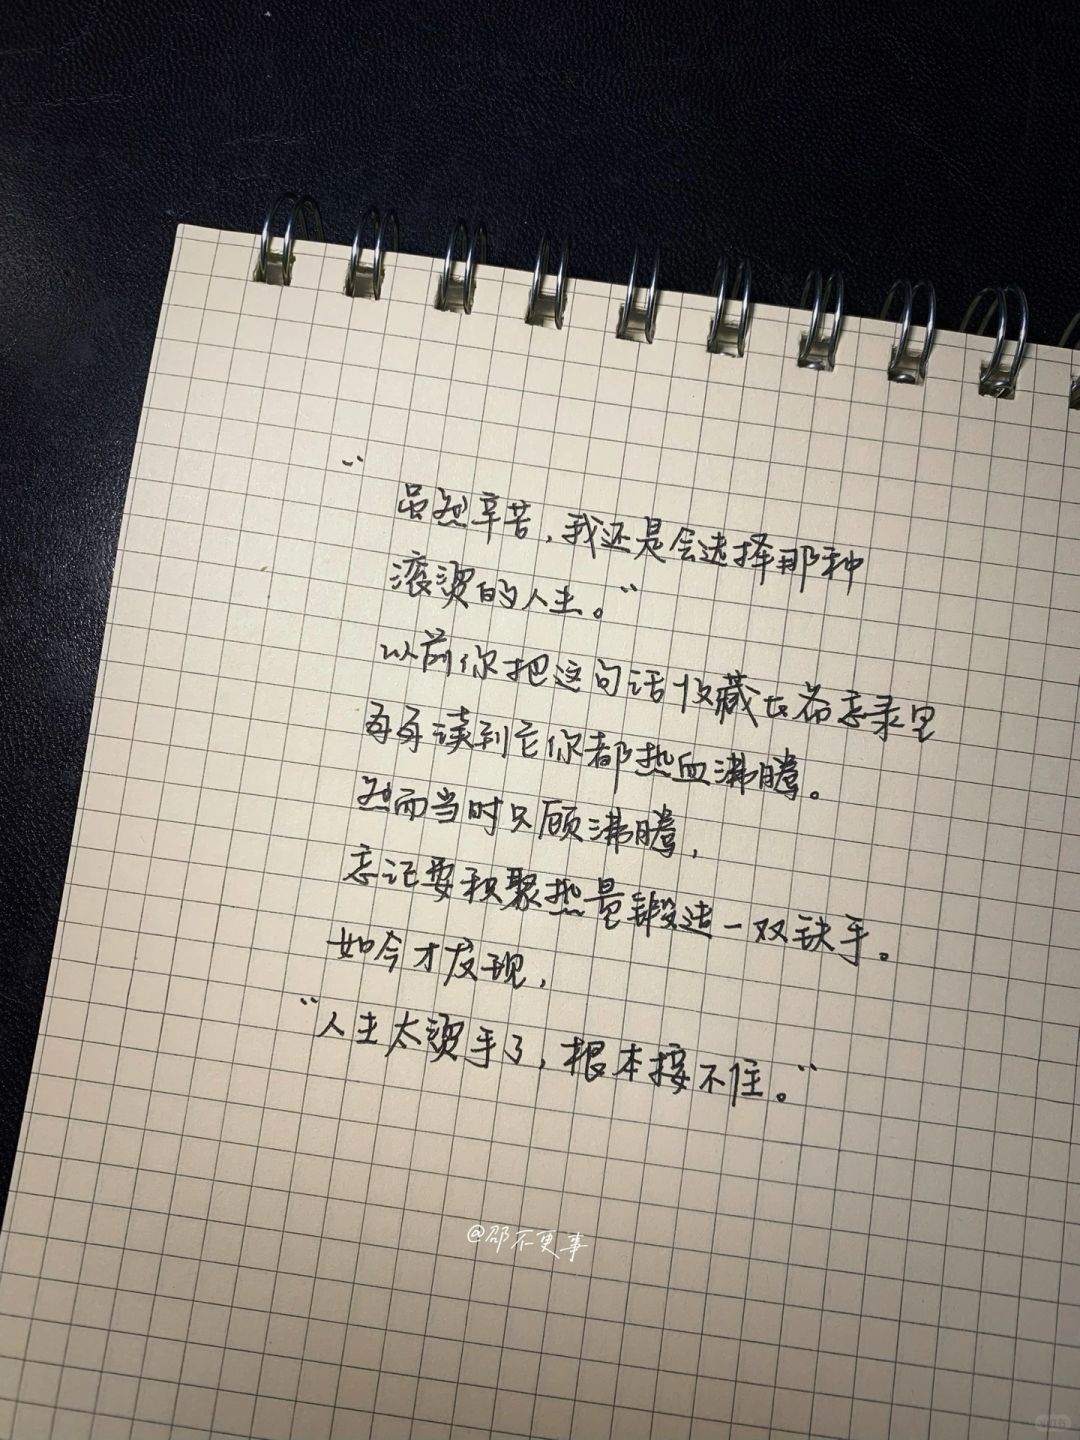 “虽然辛苦，我还是会选择那种
滚烫的人生。”
以前你把这句话收藏在备忘录里
每每读到它你都热血沸腾。
然而当时只顾沸腾，
忘记要积聚热量锻造一双铁手。
如今才发现，
“人生太烫手了，根本接不住。”
@邵不更事
小红书